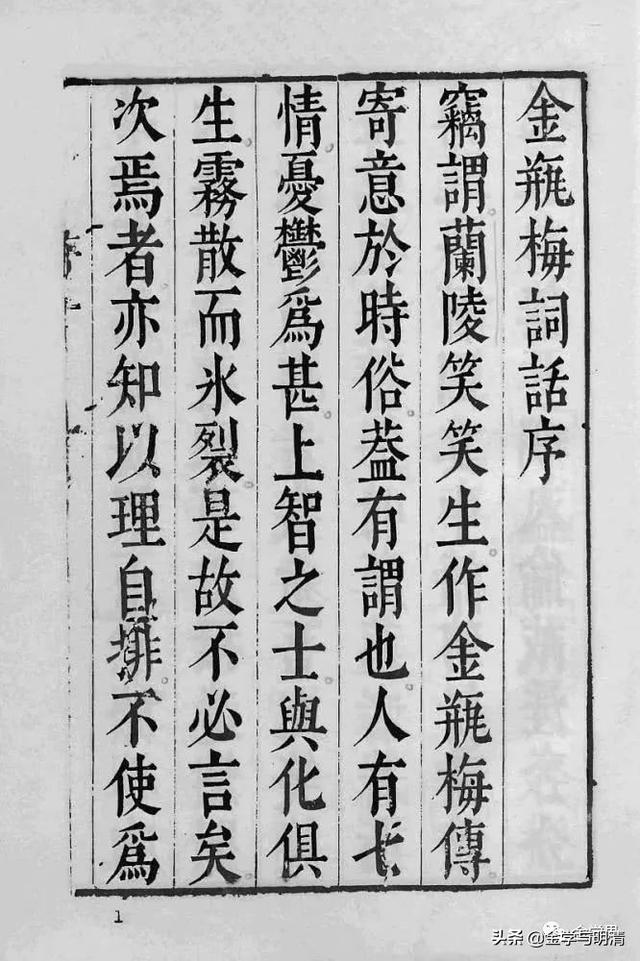 金瓶梅詞話序
竊謂蘭陵笑笑生作金瓶梅傳
寄意於時俗葢有謂也人有七
情憂鬱爲甚上智之士與化俱
生霧散而氷裂是故不必言矣
次焉者亦知以理自排不使爲
1
头条 @金学与明清